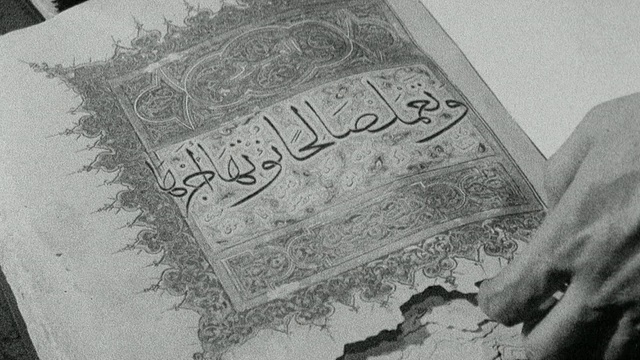 وتعمل صالحا نؤتها أجرها